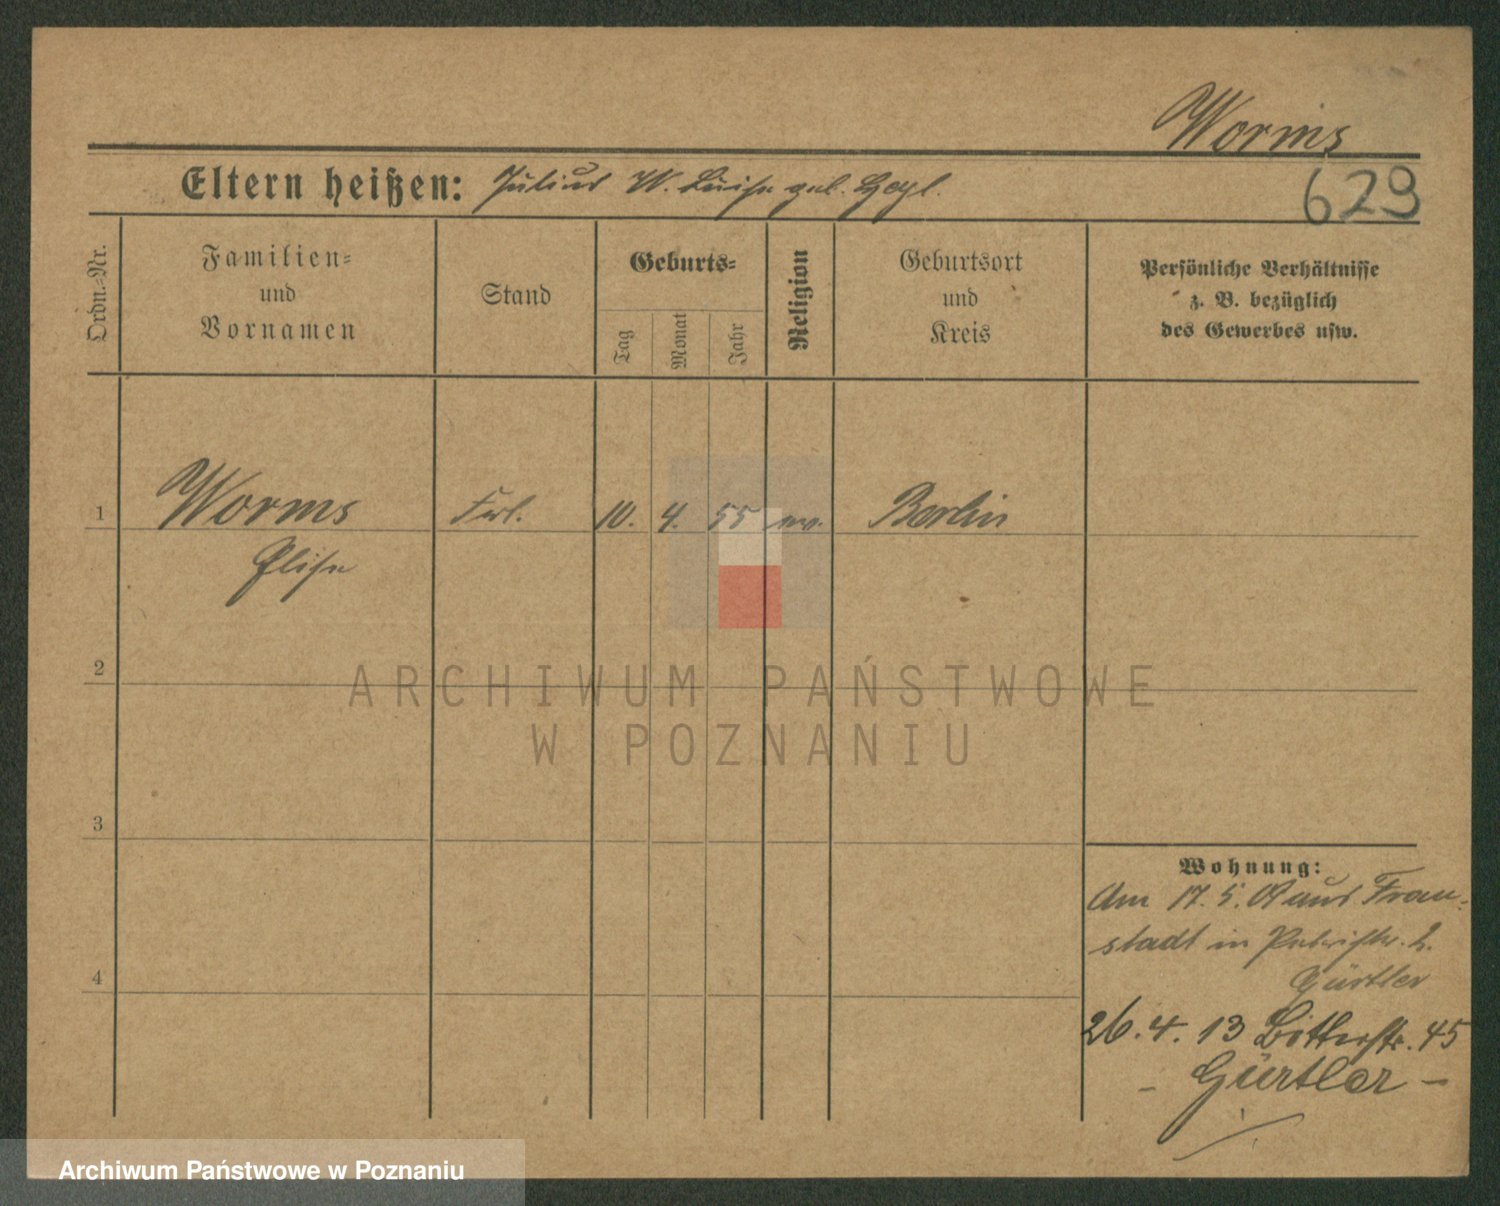 Worms
Eltern heißen: Julius W. Luise geb.
629
Ordn.-Nr.
Familien-
und
Vornamen
Stand
Geburts-
Tag
Monat
Jahr
Religion
Geburtsort
und
Kreis
Persönliche Verhältnisse
z. B. bezüglich
des Gewerbes usw.
1 Worms Frl. 10. 4. 55 ev. Berlin
Elise
2
ARCHIWUM PAŃSTWOWE
W POZNANIU
3
4
Wohnung:
Am 17. 5. aus Frau-
stadt in Petristr. 2.
Gürtler
26. 4. 13 45
- Gürtler -
Archiwum Państwowe w Poznaniu